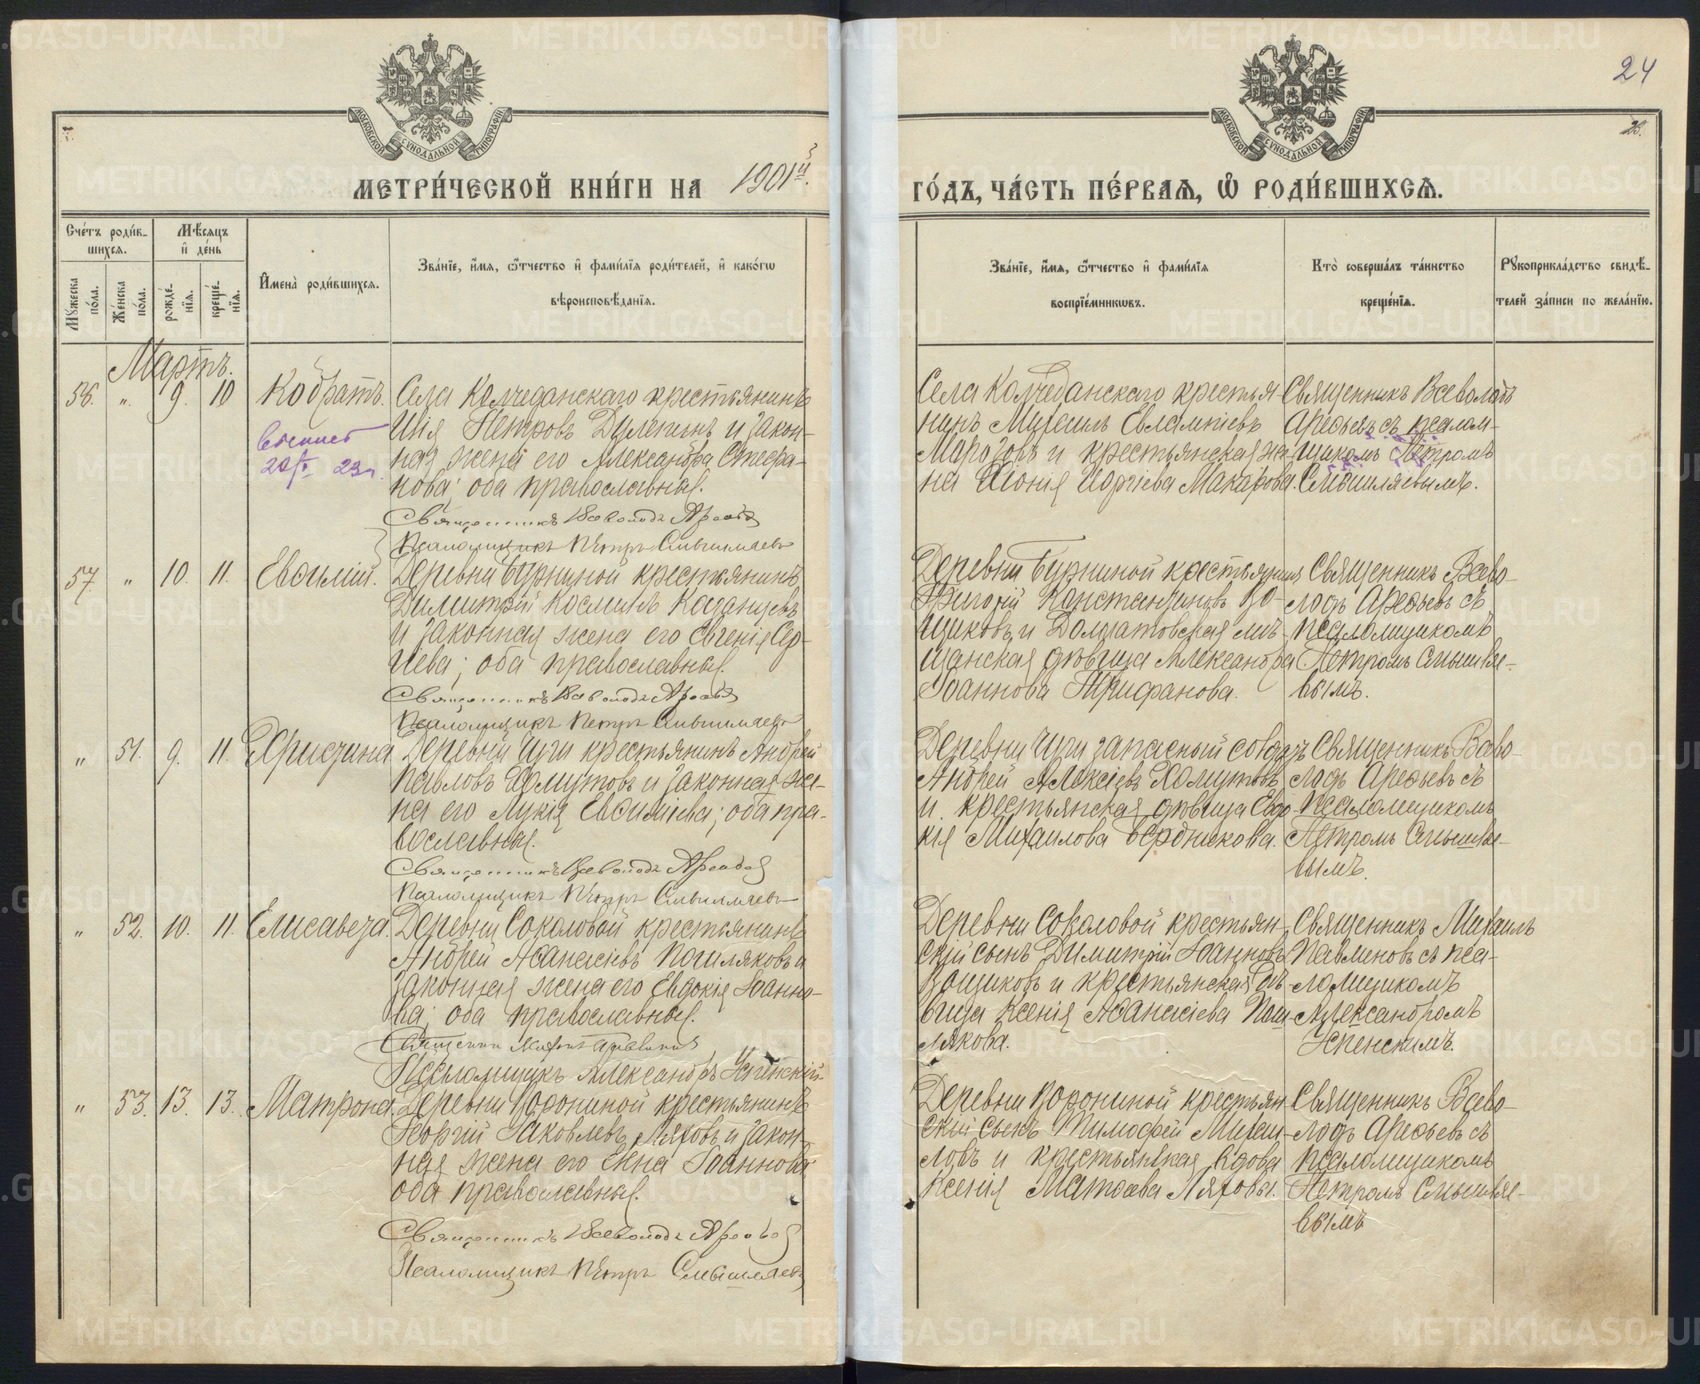 24
28.
МОСКОВСКОЙ СѴНОДАЛЬНОЙ ТИПОГРАФІИ
МОСКОВСКОЙ СѴНОДАЛЬНОЙ ТИПОГРАФІИ
МЕТРИ́ЧЕСКОЙ КНИ́ГИ НА 1901й
ГО́ДЪ, ЧА́СТЬ ПЕ́РВАѦ, Ѡ РОДИ́ВШИХСѦ.
Сче́тъ роди́в-
шихсѧ.
Мѣ́сѧцъ
и де́нь
Мꙋжеска по́ла.
Же́нска по́ла.
рожде́нїѧ.
креще́нїѧ.
Имена̀ роди́вшихсѧ.
Зва́нїе, и́мѧ, ѻ́тчество и фами́лїѧ роди́телей, и како́гѡ
вѣроисповѣ́данїѧ.
Зва́нїе, и́мѧ, ѻ́тчество и фами́лїѧ
воспрїе́мникѡвъ.
Кто̀ соверша́лъ та́инство
креще́нїѧ.
Рꙋкоприкла́дство свидѣ́-
телей за́писи по жела́нїю.
Мартъ.
56. " 9. 10 Кодратъ.
Села Колчеданскаго крестьянинъ
Илія Петровъ Дулепинъ и закон-
ная жена его Александра Стефа-
нова; оба православные.
Священникъ Всеволодъ Арефьев
Псаломщикъ Петръ Смышляевъ
Села Колчеданскаго крестья-
нинъ Михаилъ Евлампіевъ
Морозовъ и крестьянская же-
на Іонія Георгіева Макарова.
Священникъ Всеволодъ
Арефьевъ съ псалом-
щикомъ Петромъ
Смышляевымъ.
57. " 10. 11. Евѳимій.
Деревни Бурниной крестьянинъ
Димитрій Космин Казанцевъ
и законная жена его Евгенія Сер-
гіева; оба православные.
Священникъ Всеволодъ Арефьев
Псаломщикъ Петръ Смышляевъ
Деревни Бурниной крестьянинъ
Григорій Константиновъ Зо-
щиковъ и Долматовская мѣ-
щанская дѣвица Александра
Іоаннова Трифанова.
Священникъ Всево-
лодъ Арефьевъ съ
псаломщикомъ
Петромъ Смышляе-
вымъ.
" 51. 9. 11.
Деревни Чуги крестьянинъ Андрей
Павловъ Хомутовъ и законная же-
на его Лукія Евѳиміева; оба пра-
вославные.
Священникъ Всеволодъ Арефьев
Псаломщикъ Петръ Смышляевъ
Деревни Чуги запасный солдатъ
Андрей Алексіевъ Хомутовъ
и крестьянская дѣвица Евдо-
кія Михаилова Бердникова.
Священникъ Всево-
лодъ Арефьевъ съ
псаломщикомъ
Петромъ Смышляе-
вымъ.
" 52. 10. 11. Елисавета.
Деревни Соколовой крестьянинъ
Андрей Аѳанасіевъ Пошляковъ и
законная жена его Евдокія Іоанно-
ва; оба православные.
Псаломщикъ Александръ Успенскій.
Деревни Соколовой крестьян-
скій сынъ Димитрій Іоанновъ
Зощиковъ и крестьянская дѣ-
вица Ксенія Аѳанасіева Пош-
лякова.
Священникъ Михаилъ
съ пса-
ломщикомъ
Александромъ
Успенскимъ.
" 53. 13. 13. Матрона.
Деревни Ворониной крестьянинъ
Георгій Іаковлевъ Ляховъ и закон-
ная жена его Анна Іоаннова
оба православные.
Священникъ Всеволодъ Арефьев
Псаломщикъ Петръ Смышляевъ
Деревни Ворониной крестьян-
скій сынъ Тимофей Михаи-
ловъ и крестьянская вдова
Ксенія Матѳеева Ляхова.
Священникъ Всево-
лодъ Арефьевъ съ
псаломщикомъ
Петромъ Смышляе-
вымъ
METRIKI.GASO-URAL.RU